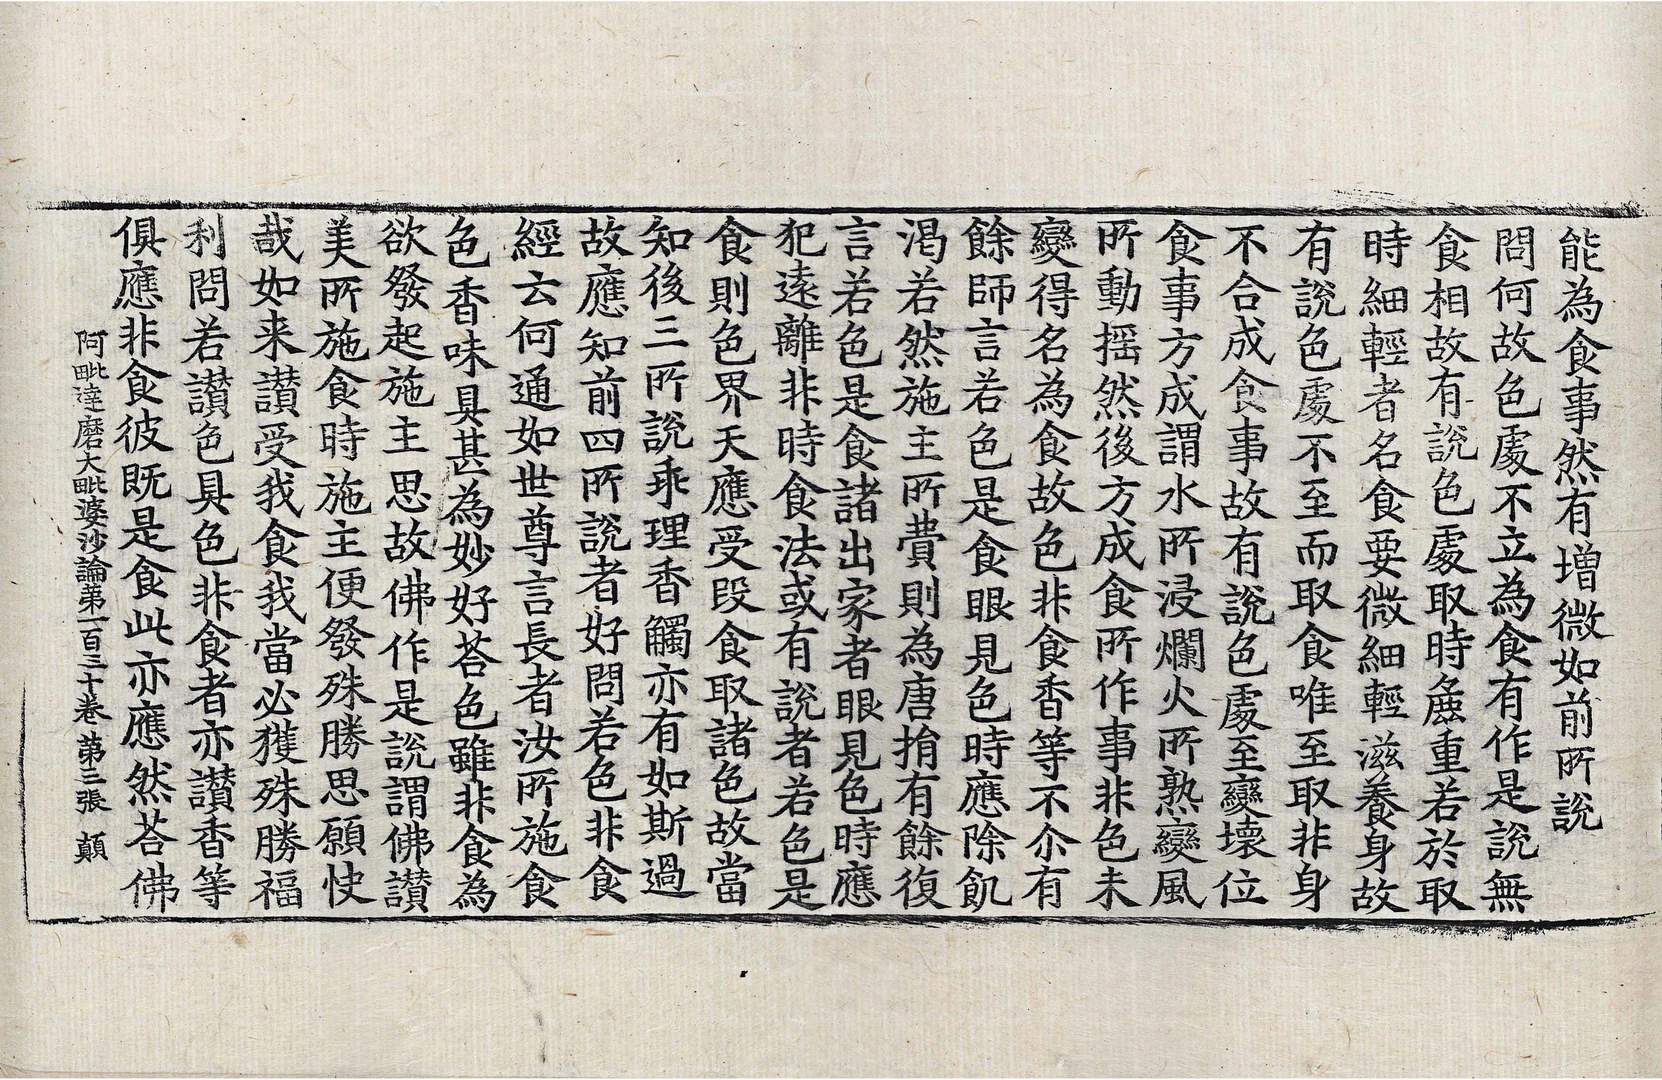 能為食事然有增微如前所說
問何故色處不立為食有作是說無
食相故有說色處取時麁重若於取
時細輕者名食要微細輕滋養身故
有說色處不至而取食唯至取非身
不合成食事故有說色處至變壞位
食事方成謂水所浸爛火所熟變風
所動揺然後方成食所作事非色未
變得名為食故色非食香等不尒有
餘師言若色是食眼見色時應除飢
渴若然施主所費則為唐捐有餘復
言若色是食諸出家者眼見色時應
犯遠離非時食法或有說者若色是
食則色界天應受段食取諸色故當
知後三所說乖理香觸亦有如斯過
故應知前四所說者好問若色非食
經云何通如世尊言長者汝所施食
色香味具甚為妙好荅色雖非食為
欲發起施主思故佛作是說謂佛讃
美所施食時施主便發殊勝思願快
哉如来讃受我食我當必獲殊勝福
利問若讃色具色非食者亦讃香等
俱應非食彼既是食此亦應然荅佛
阿毗達磨大毗婆沙論第一百三十卷 第三張 顛